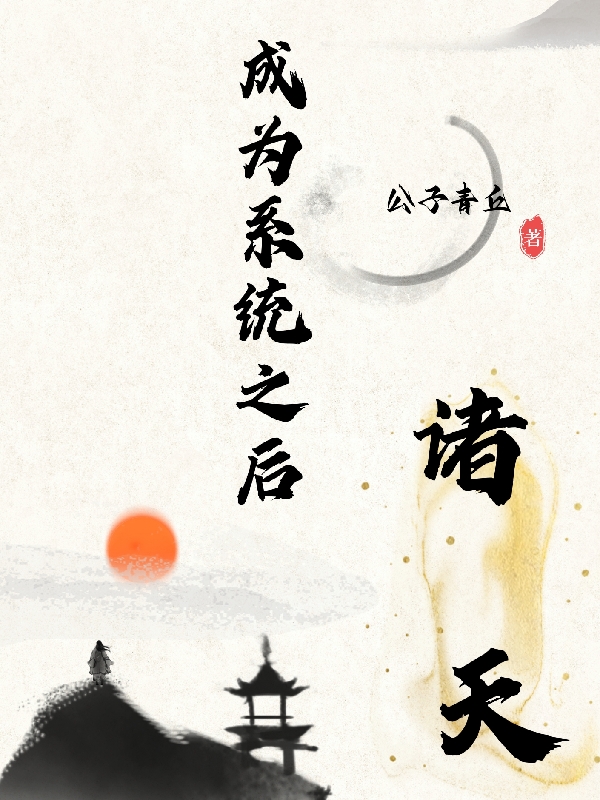 诸天
成为系统之后
公子青丘
著